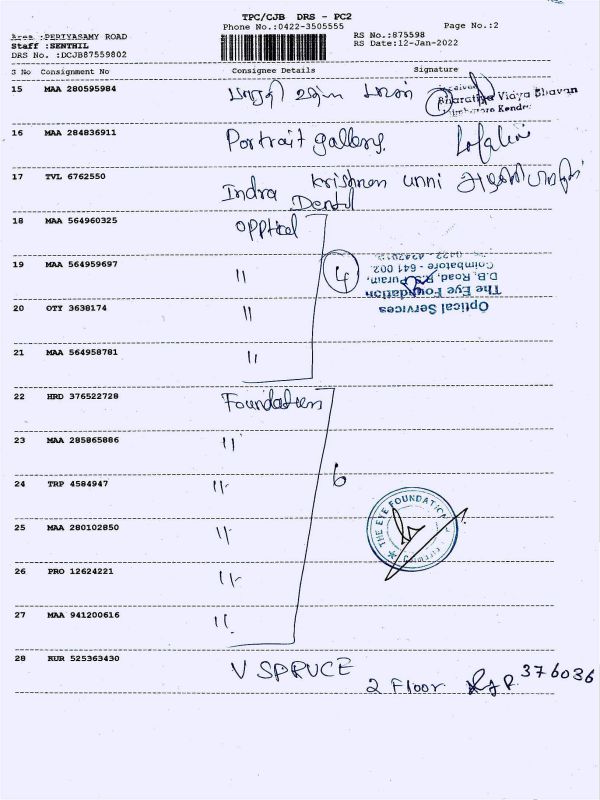 TPC/CJB DRS - PC2
Phone No.:0422-3505555 Page No.:2
Area :PERIYASAMY ROAD RS No.:875598
Staff :SENTHIL RS Date:12-Jan-2022
DRS No. :DCJB87559802
S No Consignment No Consignee Details Signature
15 MAA 280595984 பாரதி வித்யா பவன் Bharatiya Vidya Bhavan
Coimbatore Kendra
16 MAA 284836911 Portrait gallery.
17 TVL 6762550 Indra krishnan unni
Dental
18 MAA 564960325 opptical
19 MAA 564959697 11 4
20 OTY 3638174 11
21 MAA 564958781 11
Optical Services
The Eye Foundation
D.B. Road, R.S. Puram,
Coimbatore - 641 002.
22 HRD 376522728 Foundation
23 MAA 285865886 11
24 TRP 4584947 11 6
25 MAA 280102850 11
THE EYE FOUNDATION
26 PRO 12624221 11
27 MAA 941200616 11
28 KUR 525363430 V SPRUCE
2 Floor 376036